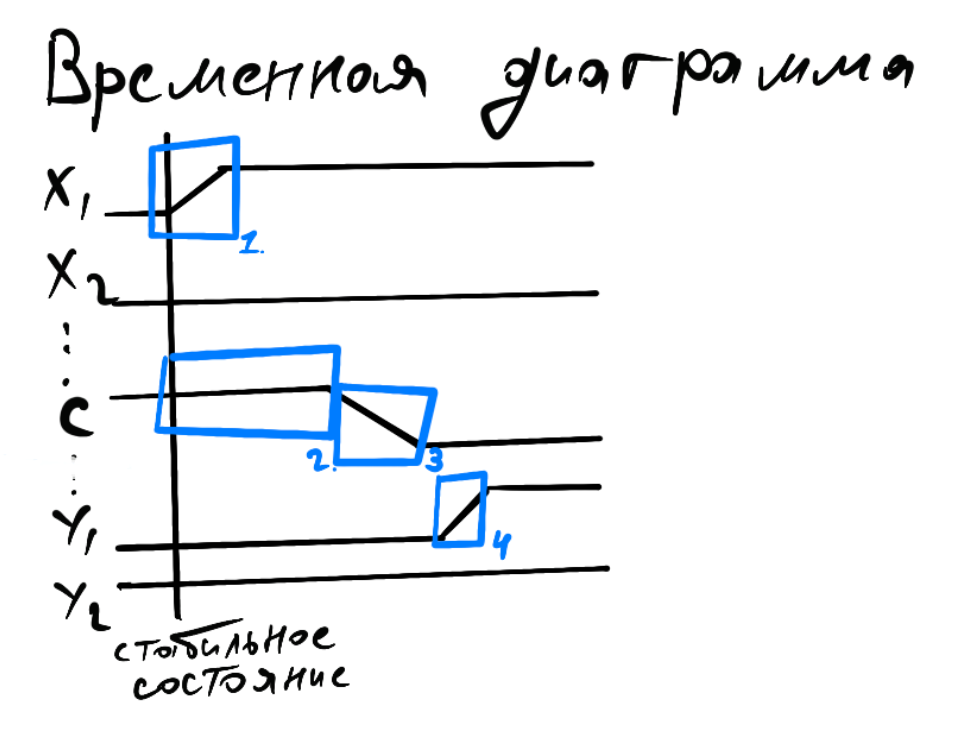 Временная диаграмма
X1
1.
X2
⋮
C
2.
3
⋮
Y1
4
Y2
стабильное
состояние